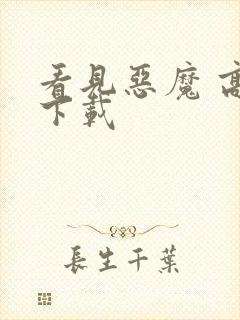 看見惡魔 高
下載
長生千葉